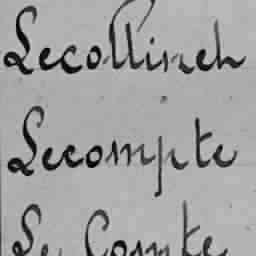 Lecollinch
Lecompte
Le Comte